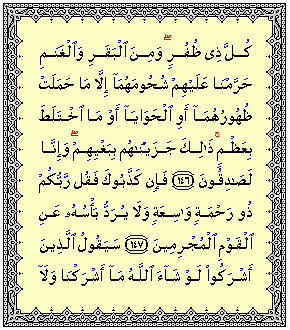 كُلَّ ذِى ظُفُرٍۢ ۖ وَمِنَ ٱلْبَقَرِ وَٱلْغَنَمِ
حَرَّمْنَا عَلَيْهِمْ شُحُومَهُمَآ إِلَّا مَا حَمَلَتْ
ظُهُورُهُمَآ أَوِ ٱلْحَوَايَآ أَوْ مَا ٱخْتَلَطَ
بِعَظْمٍۢ ۚ ذَٰلِكَ جَزَيْنَٰهُم بِبَغْيِهِمْ ۖ وَإِنَّا
لَصَٰدِقُونَ ١٤٦ فَإِن كَذَّبُوكَ فَقُل رَّبُّكُمْ
ذُو رَحْمَةٍۢ وَٰسِعَةٍۢ وَلَا يُرَدُّ بَأْسُهُۥ عَنِ
ٱلْقَوْمِ ٱلْمُجْرِمِينَ ١٤٧ سَيَقُولُ ٱلَّذِينَ
أَشْرَكُوا۟ لَوْ شَآءَ ٱللَّهُ مَآ أَشْرَكْنَا وَلَآ